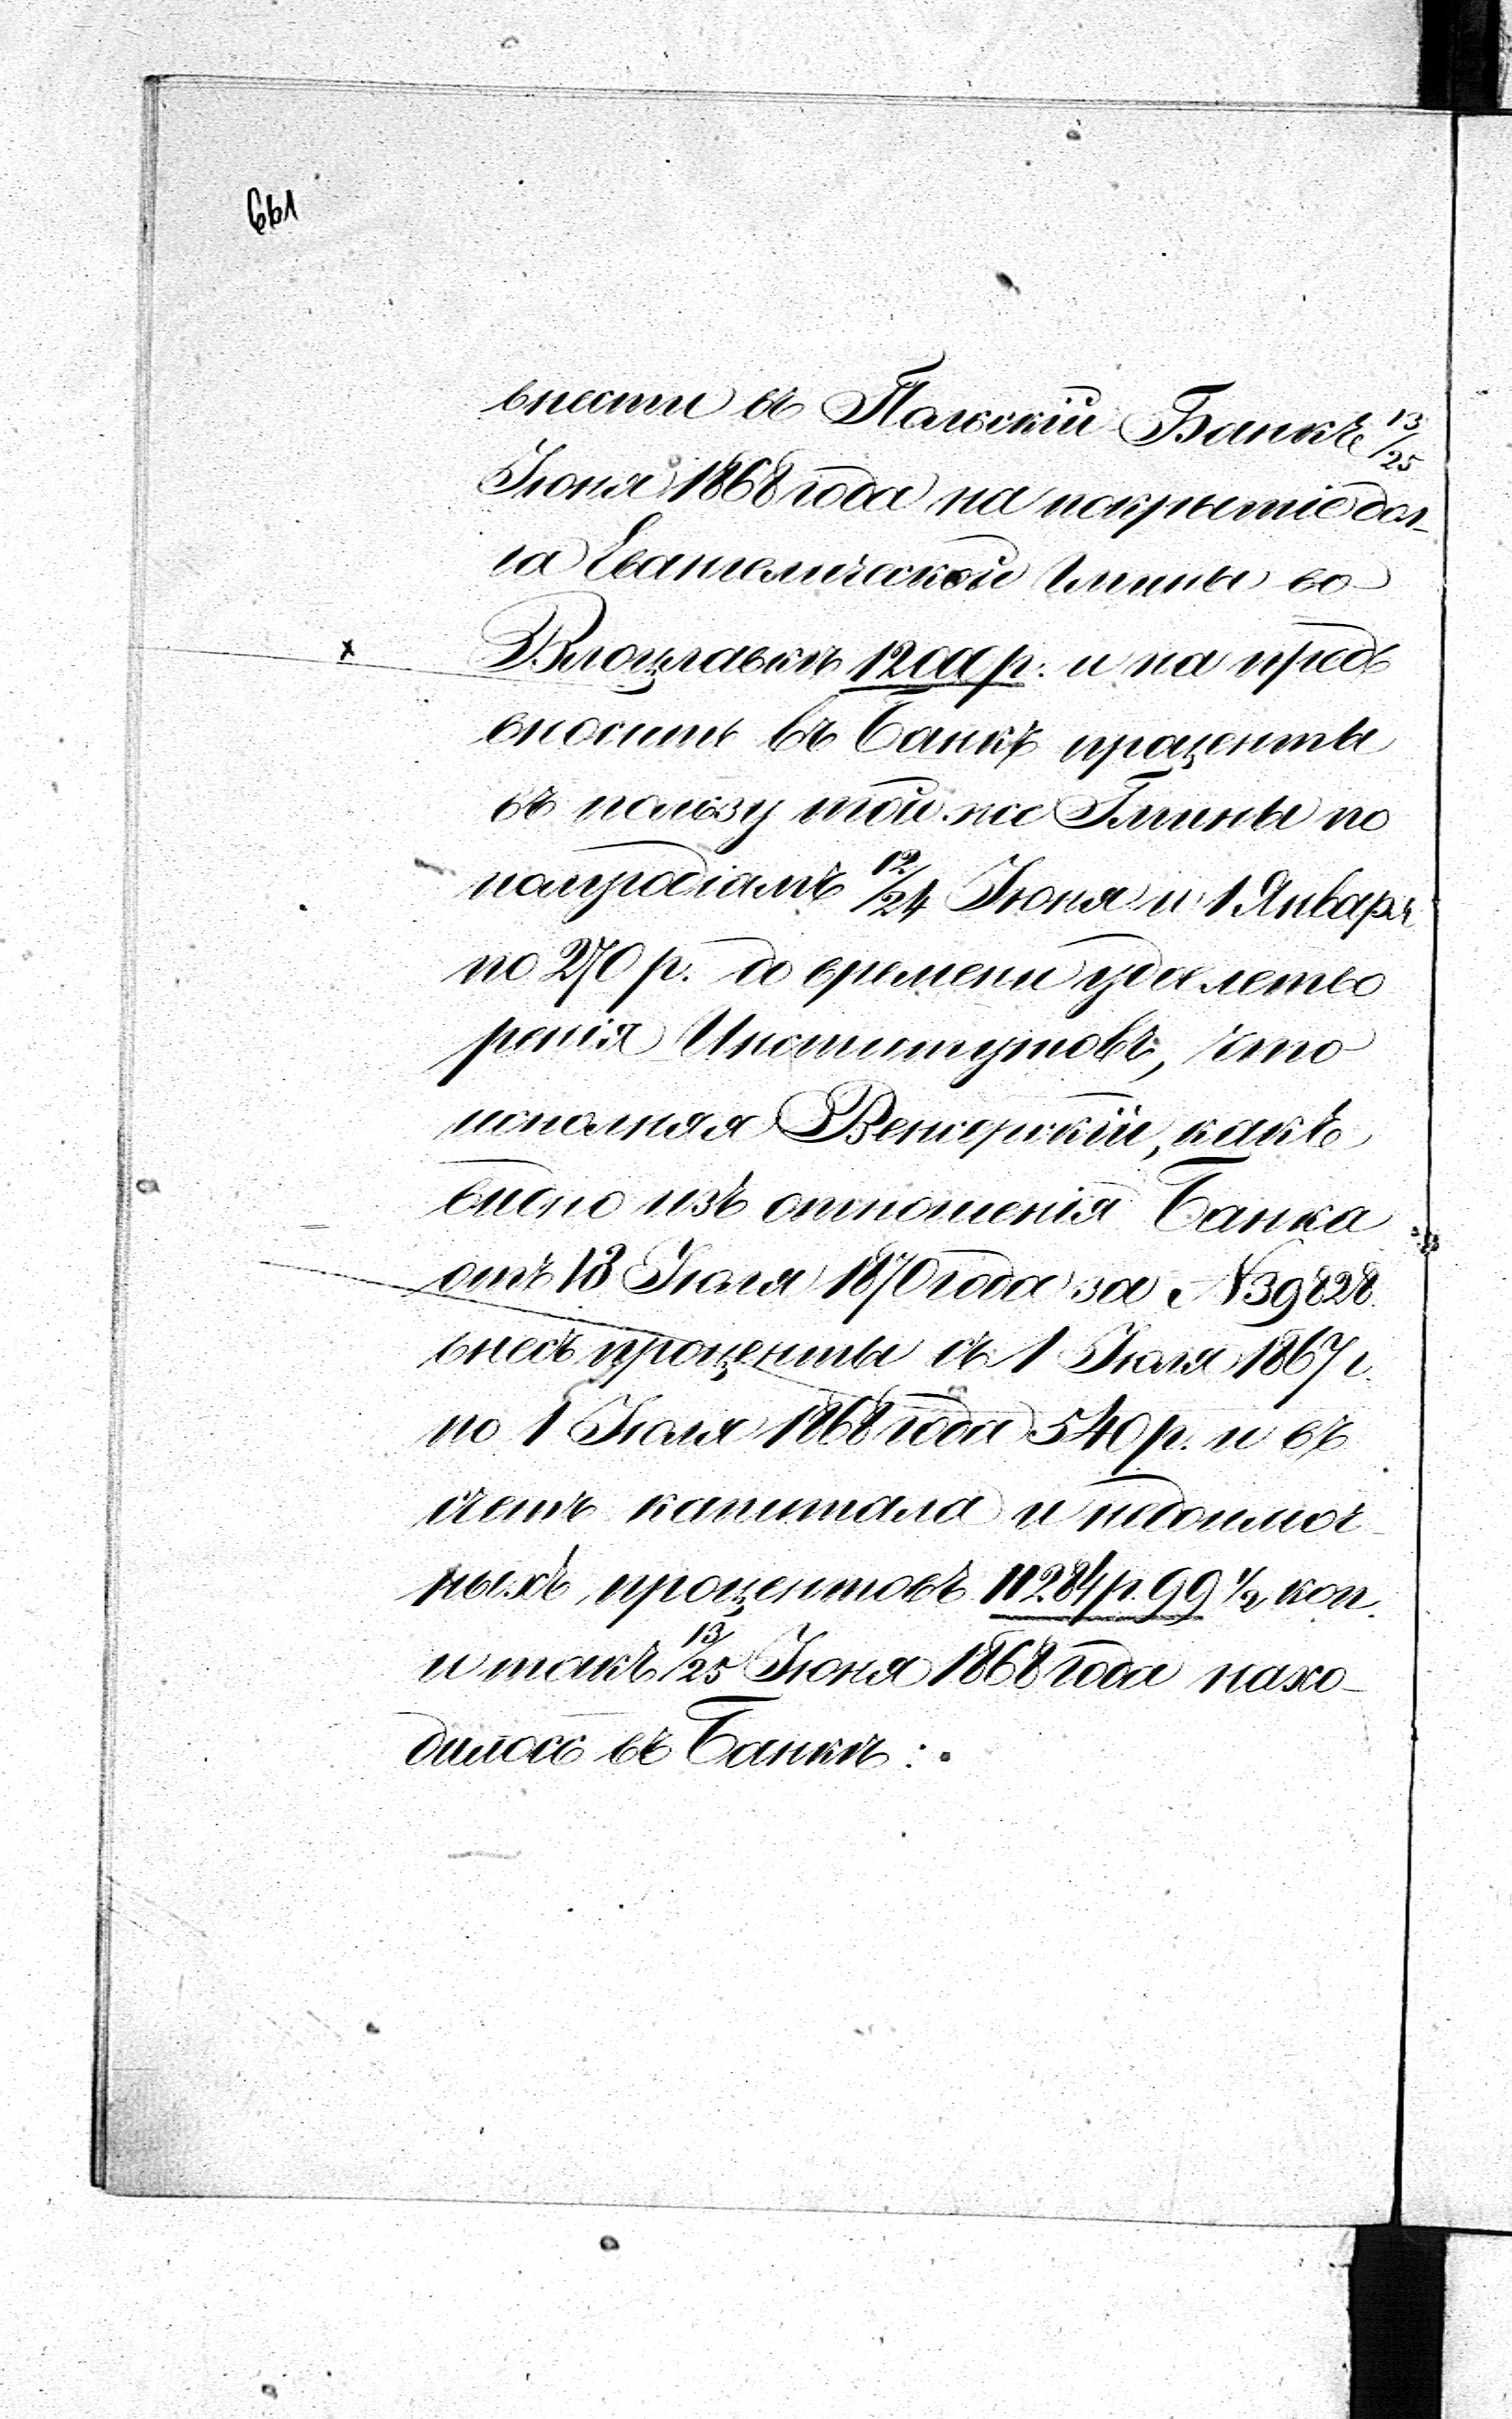 661
внести въ Польскій Банкъ 13/25
Іюня 1868 года на покрытіе дол-
га Евангелической Гмины во
х Влоцлавкѣ 1200 р. и на предъ
вносить въ Банкъ проценты
въ пользу той же Гмины по
полугодіямъ 12/24 Іюня и 1 Января
по 270 р. до времени удовлетво
ренія Институтовъ, что
исполняя Венгерскій, какъ
видно изъ отношенія Банка
отъ 18 Іюля 1870 года за № 39828.
внесъ проценты съ 1 Іюля 1867 г.
по 1 Іюля 1868 года 540 р. и въ
счетъ капитала и недоимоч-
ныхъ процентовъ 11284 р. 99 1/2 коп.
и такъ 13/25 Іюня 1868 года нахо-
дилось въ Банкѣ: